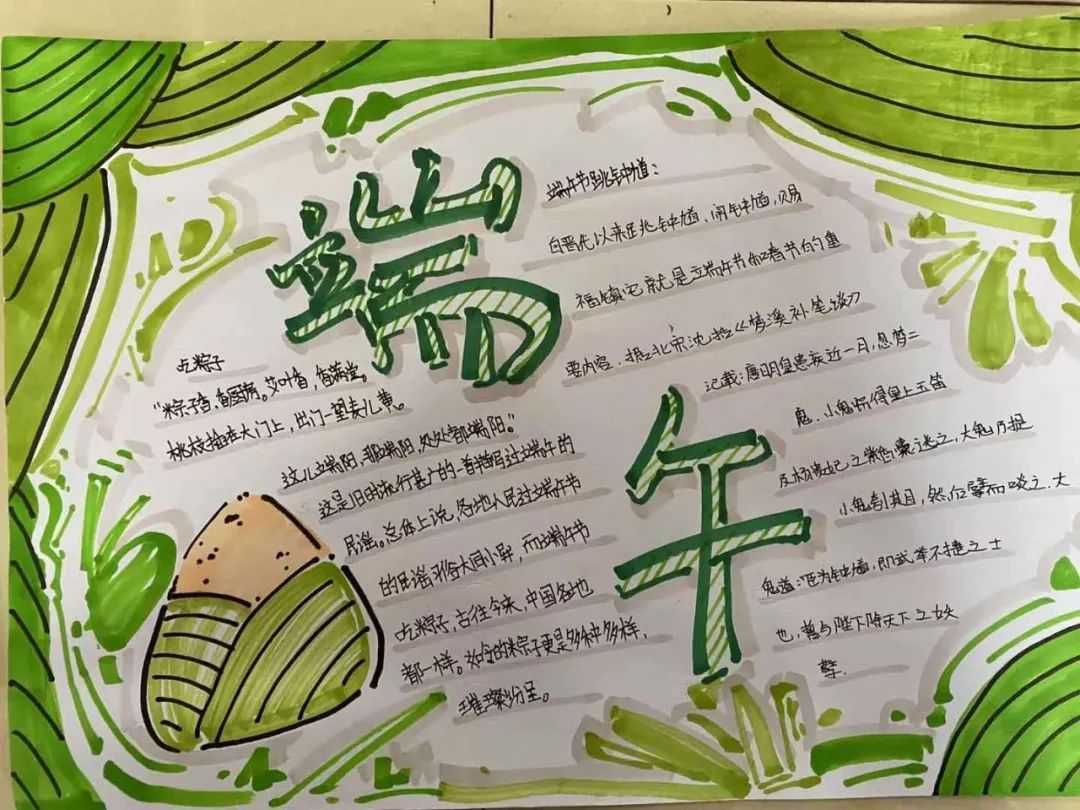 端
午
吃粽子
“粽子香,香厨房。艾叶香,香满堂。
桃枝插在大门上,出门一望麦儿黄。
这儿端阳,那端阳,处处都端阳。”
这是旧时流行甚广的一首描写过端午的
民谣。总体上说,各地人民过端午节
的民谣习俗大同小异,而端午节
吃粽子,古往今来,中国各地
都一样。如今的粽子更是多种多样,
璀璨纷呈。
端午节跳钟馗:
自晋代以来跳钟馗,闹钟馗,赐
福镇宅就是端午节和春节的重
要内容.据北宋沈括《梦溪补笔谈》
记载:唐明皇患疾近一月,忽梦二
鬼.小鬼 得皇上玉笛
及杨贵妃之紫香囊逃之,大鬼乃捉
小鬼刳其目,然后擘而啖之.大
鬼道:臣为钟馗,即武举不捷之士
也,誓与陛下除天下之妖
孽.